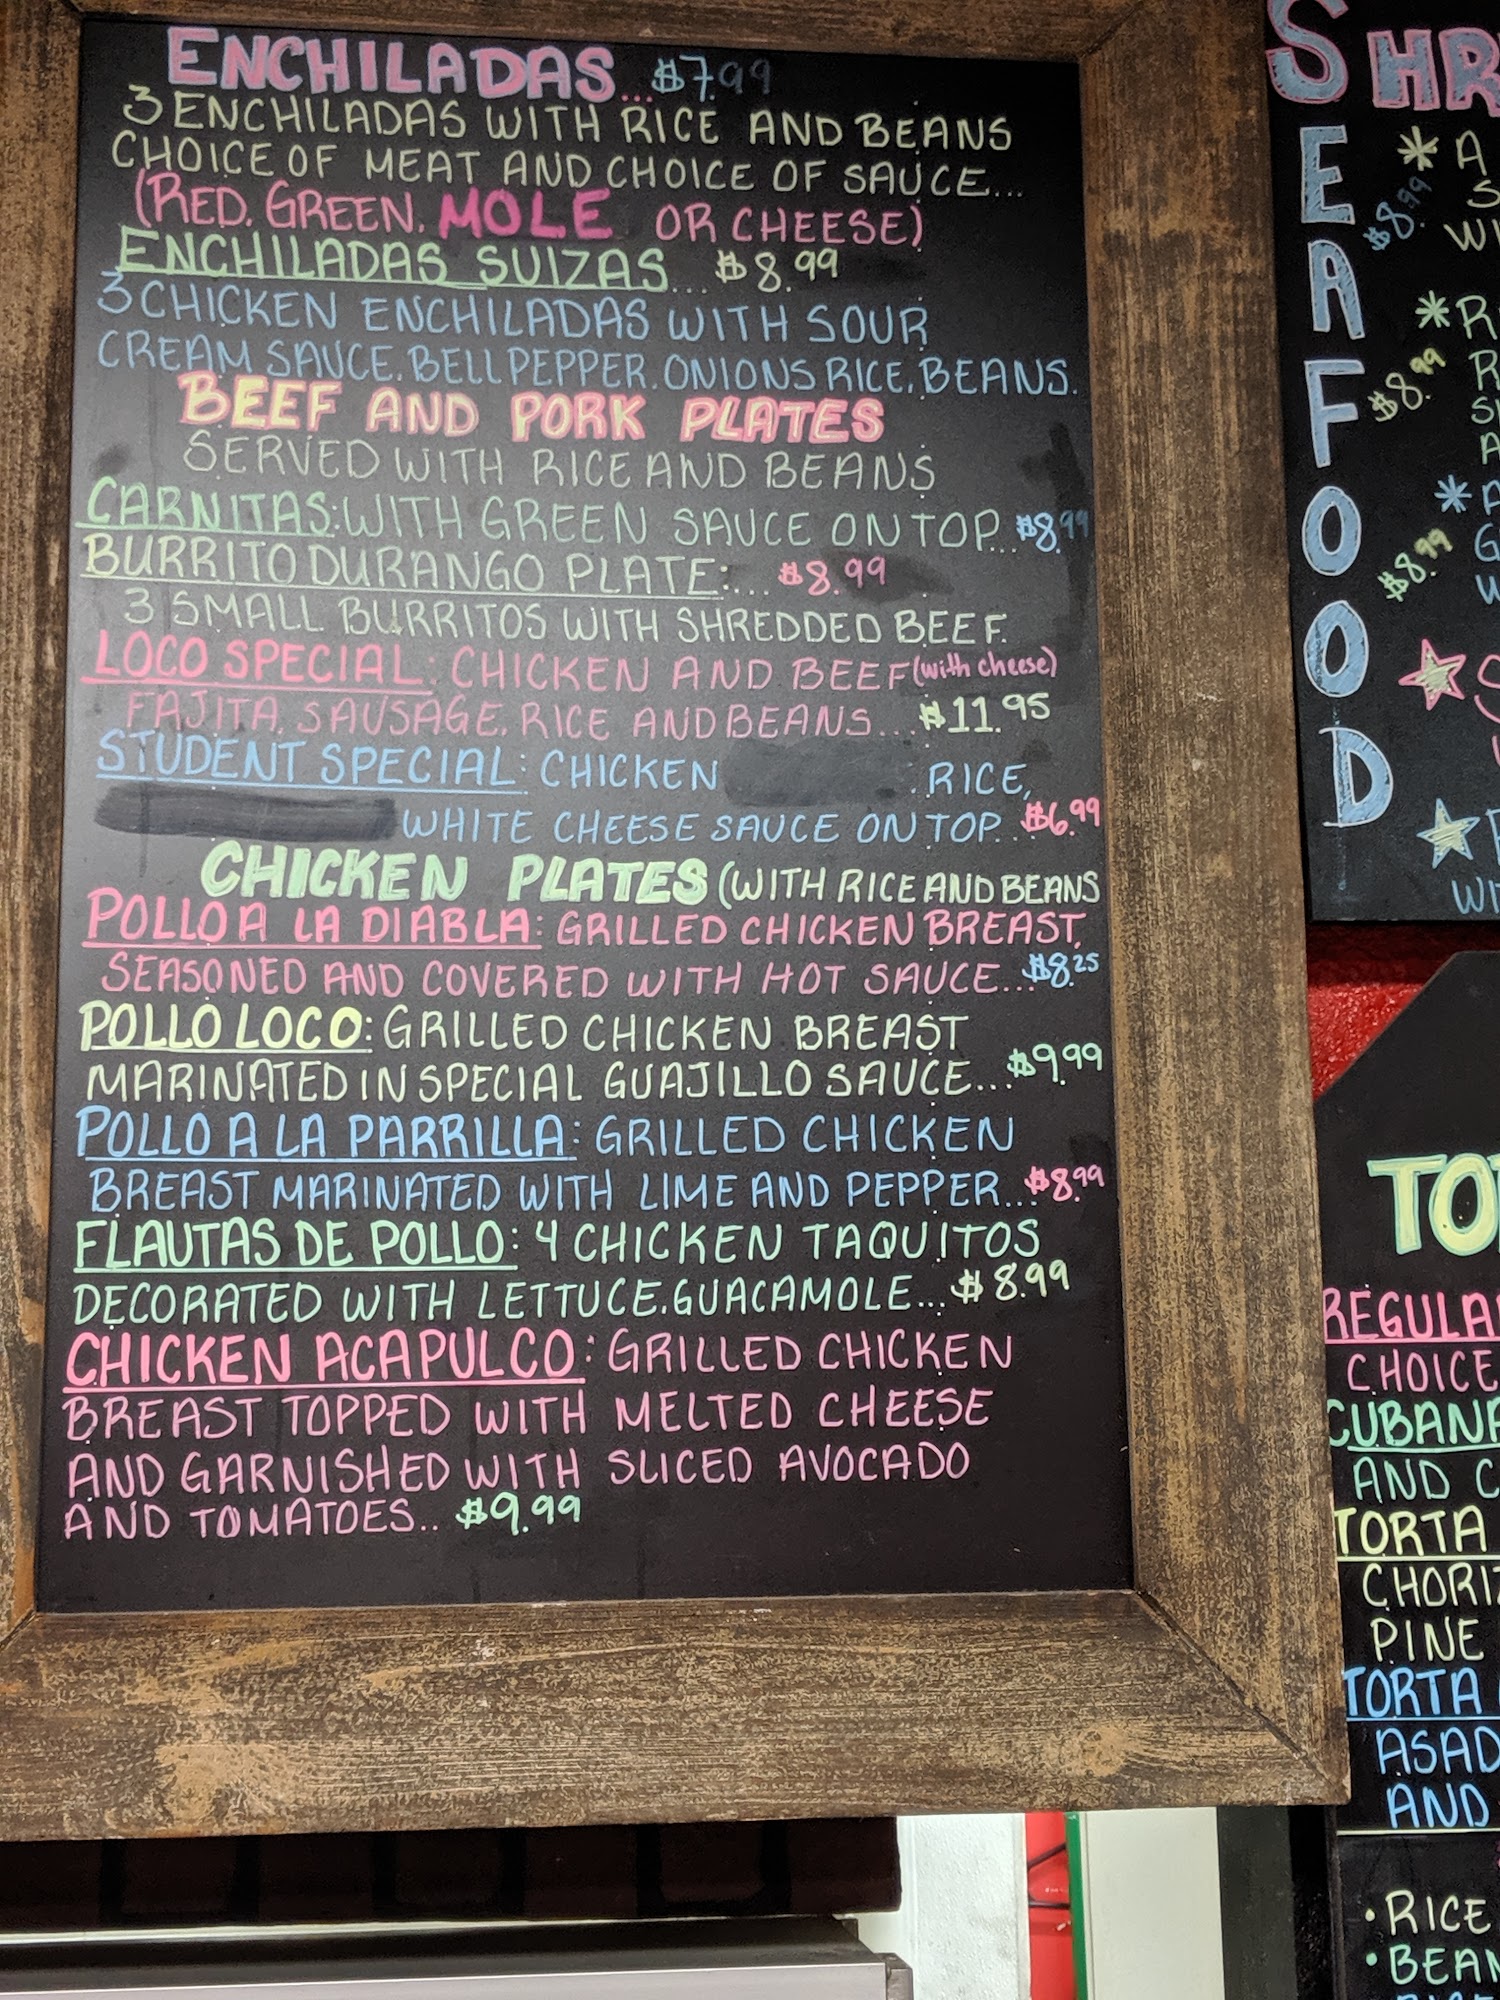 ENCHILADAS...$7.99
3 ENCHILADAS WITH RICE AND BEANS
CHOICE OF MEAT AND CHOICE OF SAUCE...
(RED, GREEN, MOLE OR CHEESE)
ENCHILADAS SUIZAS...$8.99
3 CHICKEN ENCHILADAS WITH SOUR
CREAM SAUCE, BELL PEPPER, ONIONS RICE, BEANS.
BEEF AND PORK PLATES
SERVED WITH RICE AND BEANS
CARNITAS: WITH GREEN SAUCE ON TOP...$8.99
BURRITO DURANGO PLATE:... $8.99
3 SMALL BURRITOS WITH SHREDDED BEEF.
LOCO SPECIAL: CHICKEN AND BEEF (with cheese)
FAJITA, SAUSAGE, RICE AND BEANS...$11.95
STUDENT SPECIAL: CHICKEN RICE,
WHITE CHEESE SAUCE ON TOP..$6.99
CHICKEN PLATES (WITH RICE AND BEANS
POLLO A LA DIABLA: GRILLED CHICKEN BREAST,
SEASONED AND COVERED WITH HOT SAUCE...$8.25
POLLO LOCO: GRILLED CHICKEN BREAST
MARINATED IN SPECIAL GUAJILLO SAUCE...$9.99
POLLO A LA PARRILLA: GRILLED CHICKEN
BREAST MARINATED WITH LIME AND PEPPER...$8.99
FLAUTAS DE POLLO: 4 CHICKEN TAQUITOS
DECORATED WITH LETTUCE, GUACAMOLE...$8.99
CHICKEN ACAPULCO: GRILLED CHICKEN
BREAST TOPPED WITH MELTED CHEESE
AND GARNISHED WITH SLICED AVOCADO
AND TOMATOES.. $9.99
SEAFOOD
* A
$8.99
$8.99
$8.99
CHOICE
AND
TORTA
PINE
TORTA
AND
• RICE